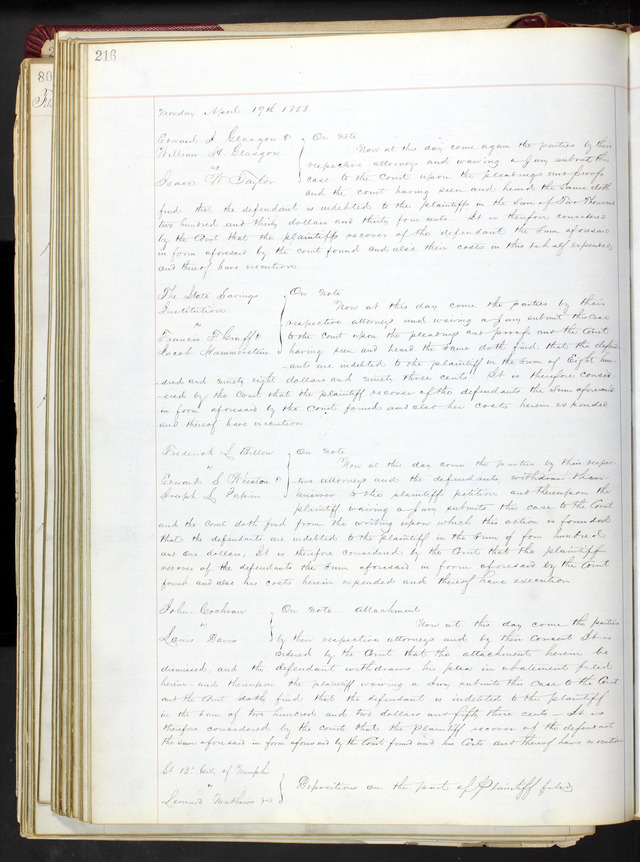 216
80
Monday April 19th 1853
Edward J Glasgow &
William H. Glasgow
vs
Isaac W Taylor
On Note
Now at this day come again the parties by their
respective attorneys and waiving a Jury submit this
case to the Court upon the pleadings and proofs
and the court having seen and heard the same doth
find that the defendant is indebted to the plaintiffs in the sum of Two Thousand
two hundred and thirty dollars and thirty four cents. It is therefore considered
by the Court that the plaintiffs recover of the defendant the sum aforesaid
in form aforesaid by the court found and also their costs in this behalf expended
and thereof have execution
The State Savings
Institution
vs
Francis F Graff &
Jacob Hammerstein
On Note
Now at this day come the parties by their
respective attorneys and waiving a Jury submit this case
to the court upon the pleadings and proof and the Court
having seen and heard the same doth find that the defend
-ants are indebted to the plaintiff in the sum of Eight hun
-dred and ninety eight dollars and ninety three cents It is therefore consid
-ered by the Court that the plaintiff recover of the defendants the sum aforesaid
in form aforesaid by the Court found and also her costs herein expended
and thereof have execution
Frederick L Billon
vs
Edward S Wheaton &
Joseph L
On Note
Now at this day come the parties by their respec
-tive attorneys and the defendants withdraw their
answer to the plaintiff petition and thereupon the
plaintiff waiving a Jury submits this case to the Court
and the Court doth find from the writing upon which this action is founded
that the defendants are indebted to the plaintiff in the sum of four hundred
and one dollars. It is therefore considered by the Court that the plaintiff
recover of the defendants the sum aforesaid in form aforesaid by the Court
found and also his costs herein expended and thereof have execution
John Cochran
vs
Davis
On Note – Attachment
Now at this day come the parties
by their respective attorneys and by their consent It is
Ordered by the Court that the attachment herein be
dismissed, and the defendant withdraws his plea in abatement filed
herein and thereupon the plaintiff waiving a Jury submits this case to the Court
and the Court doth find that the defendant is indebted to the plaintiff
in the sum of two hundred and two dollars and fifty three cents – It is
therefore considered by the court that the plaintiff recover of the defendant
the sum aforesaid in form aforesaid by the Court found and his costs and thereof have execution
St Bt City of Memphis
vs
Leonard Mathews &c
Depositions on the part of Plaintiff filed